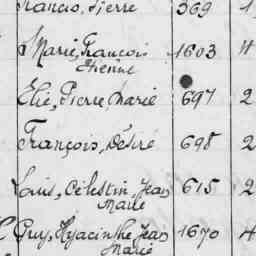 Francis, Pierre 569
Marie, François 1603 4
Etienne
Elie, Pierre, Marie 697 2
François, Désiré 698 2
Louis, Célestin, Jean 615 2
Marie
Guy, Hyacinthe, Jean 1670 4
Marie